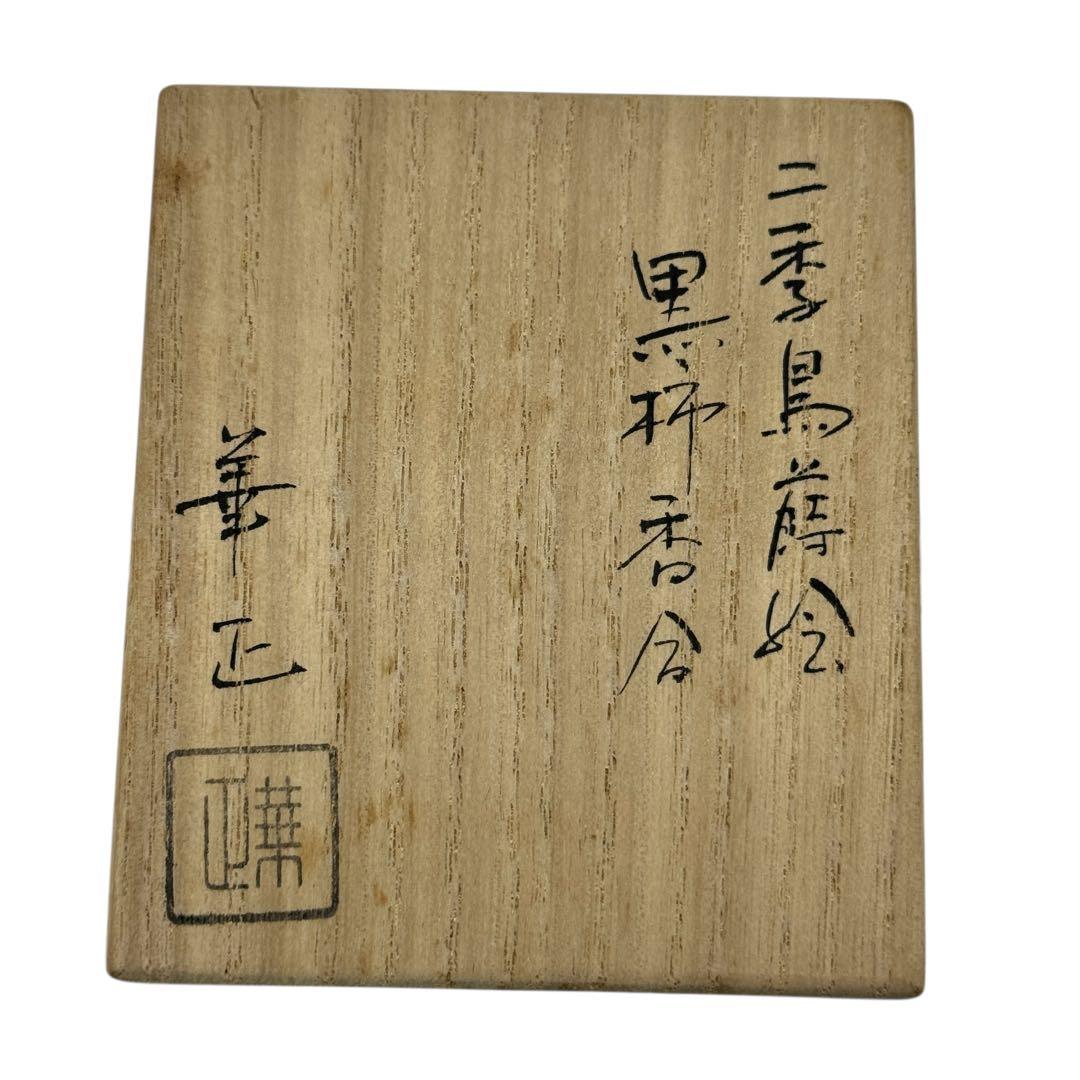 二季鳥蒔絵
黒柿香合
華正
華正